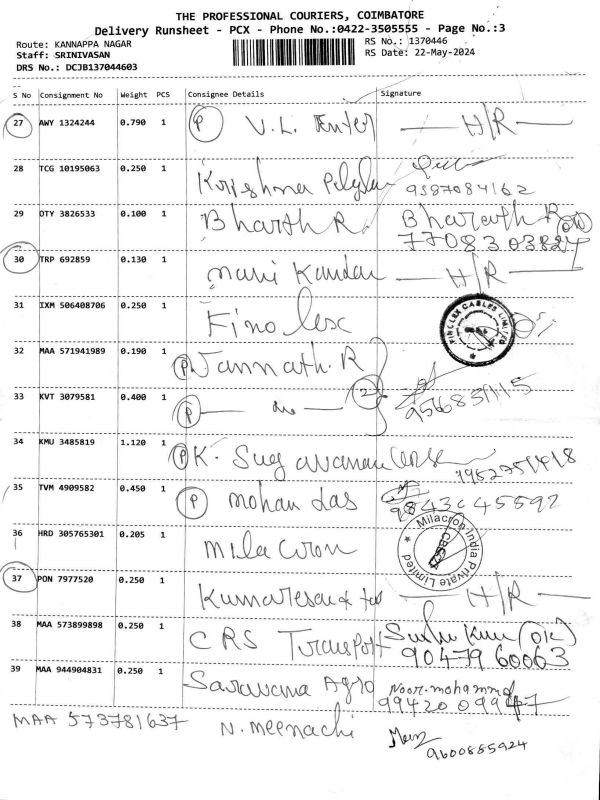 THE PROFESSIONAL COURIERS, COIMBATORE
Delivery Runsheet - PCX - Phone No.:0422-3505555 - Page No.:3
Route: KANNAPPA NAGAR RS No.: 1370446
Staff: SRINIVASAN RS Date: 22-May-2024
DRS No.: DCJB137044603
S No Consignment No Weight PCS Consignee Details Signature
27 AWY 1324244 0.790 1 P V.L. Enter H/R
28 TCG 10195063 0.250 1 Krishna 9587084162
29 OTY 3826533 0.100 1 Bharath R Bharath R
7708303824
30 TRP 692859 0.130 1 mani Kandan H/R
31 IXM 506408706 0.250 1 Finolex FINOLEX CABLES LIMITED
32 MAA 571941989 0.190 1 P Jannath. R
33 KVT 3079581 0.400 1 P do 2
34 KMU 3485819 1.120 1 P K.
35 TVM 4909582 0.450 1 P mohan das 9843045592
36 HRD 305765301 0.205 1 milacron Milacron India Private Limited
37 PON 7977520 0.250 1 Kumaresan H/R
38 MAA 573899898 0.250 1 CRS Transport
9047960063
39 MAA 944904831 0.250 1 Saravana Agro Noor.mohammed
9942009947
MAA 573781637 N. meenachi
9600885924